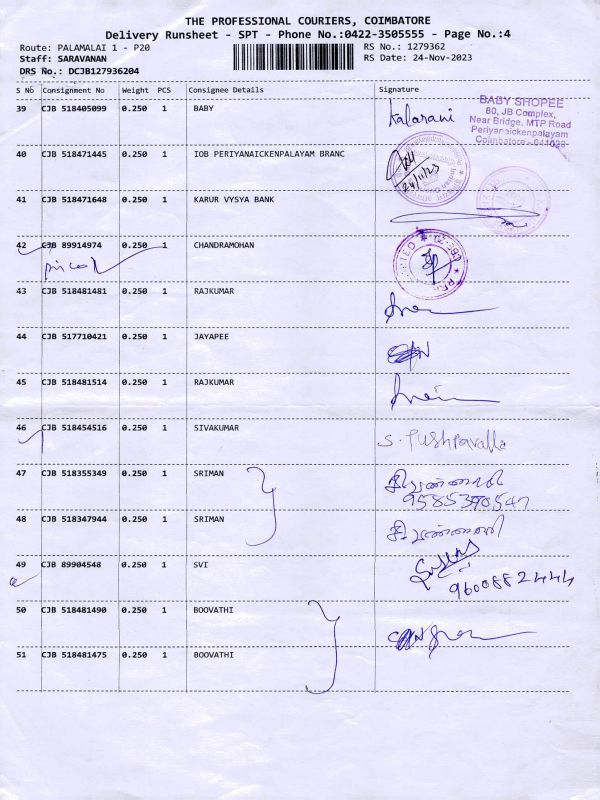 THE PROFESSIONAL COURIERS, COIMBATORE
Delivery Runsheet - SPT - Phone No.:0422-3505555 - Page No.:4
Route: PALAMALAI 1 - P20
RS No.: 1279362
Staff: SARAVANAN
RS Date: 24-Nov-2023
DRS No.: DCJB127936204
S No Consignment No Weight PCS Consignee Details Signature
39 CJB 518405099 0.250 1 BABY kalarani
BABY SHOPEE
80, JB Complex,
Near Bridge, MTP Road
Periyanaickenpalayam
Coimbatore - 641020
40 CJB 518471445 0.250 1 IOB PERIYANAICKENPALAYAM BRANC
24/11/23
41 CJB 518471648 0.250 1 KARUR VYSYA BANK
42 CJB 89914974 0.250 1 CHANDRAMOHAN
43 CJB 518481481 0.250 1 RAJKUMAR
44 CJB 517710421 0.250 1 JAYAPEE
45 CJB 518481514 0.250 1 RAJKUMAR
46 CJB 518454516 0.250 1 SIVAKUMAR S. Pushpavalla
47 CJB 518355349 0.250 1 SRIMAN
9585370547
48 CJB 518347944 0.250 1 SRIMAN
49 CJB 89904548 0.250 1 SVI
9600882444
50 CJB 518481490 0.250 1 BOOVATHI
51 CJB 518481475 0.250 1 BOOVATHI